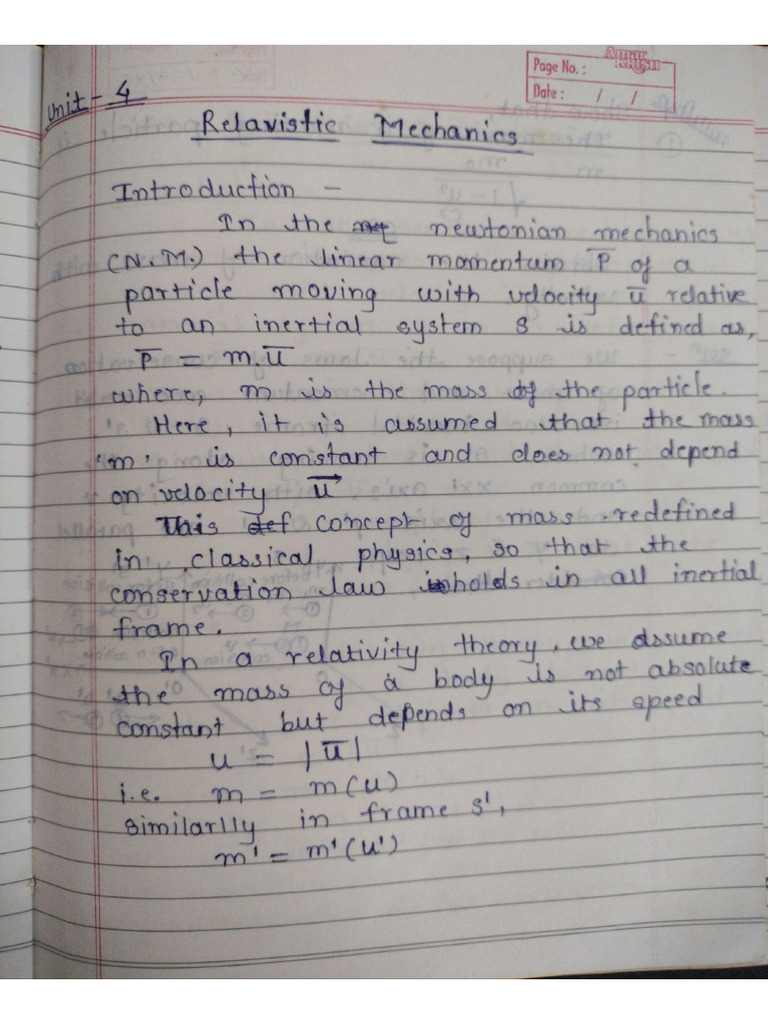 Amar KRISH
Page No. :
Date : / /
Unit - 4
Relavistic Mechanics
Introduction -
In the newtonian mechanics
(N.M.) the linear momentum P̅ of a
particle moving with velocity u̅ relative
to an inertial system S is defined as,
P̅ = m u̅
where, m is the mass of the particle.
Here, it is assumed that the mass
'm' is constant and does not depend
on velocity u⃗
This concept of mass redefined
in classical physics, so that the
conservation law holds in all inertial
frame.
In a relativity theory, we assume
the mass of a body is not absolute
constant but depends on its speed
u' = |u̅|
i.e. m = m(u)
similarlly in frame s',
m' = m'(u')